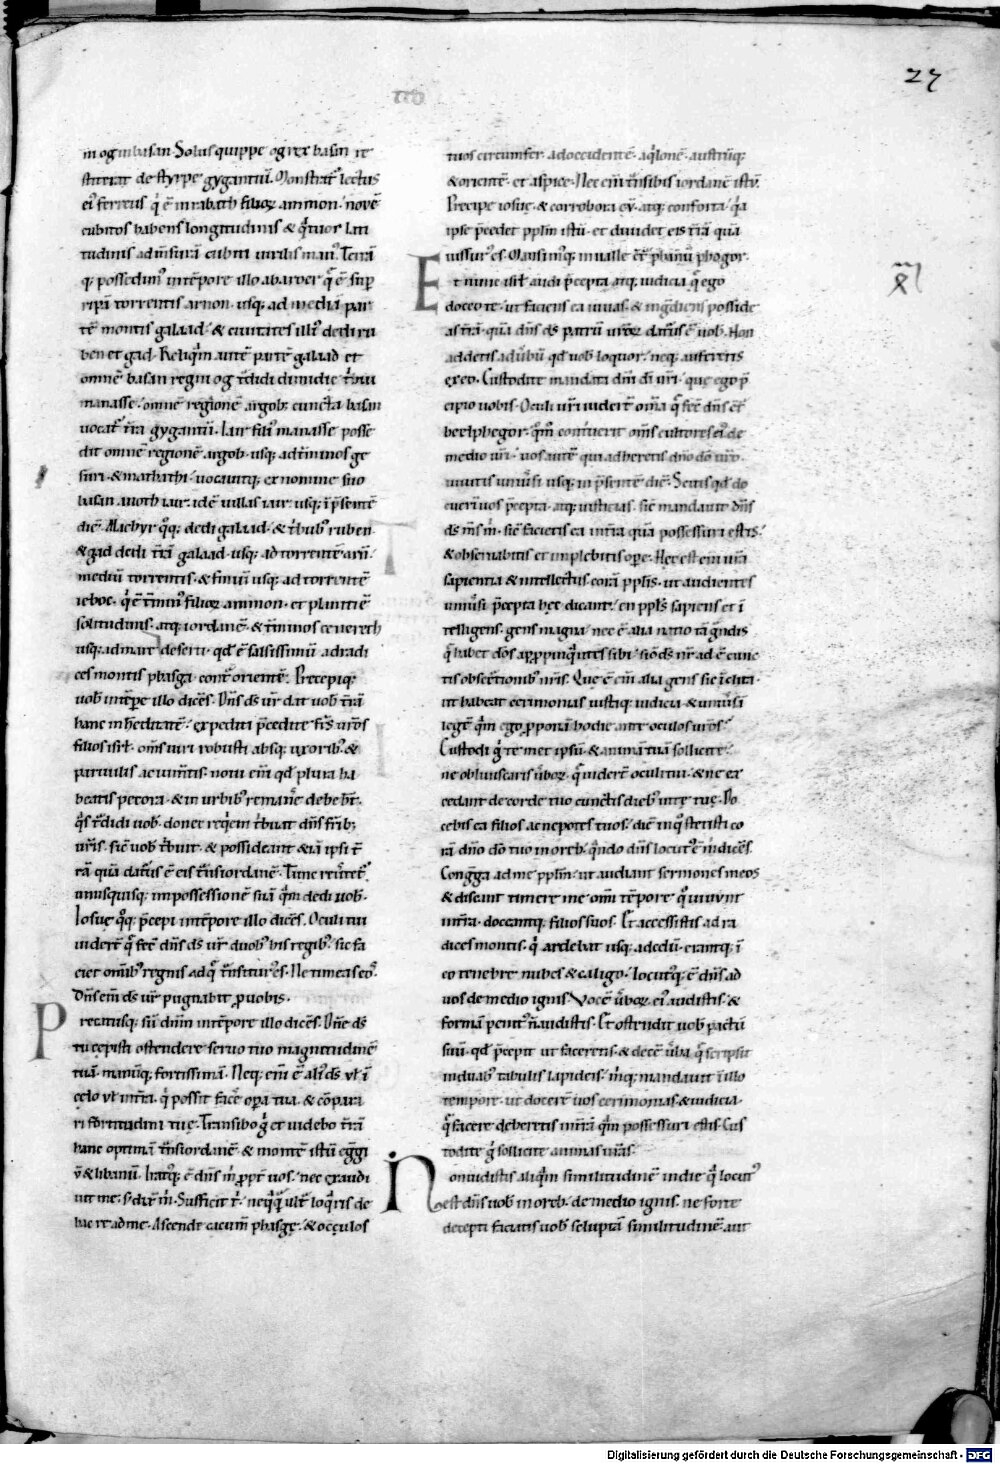 27
in og in basan. Solus quippe og rex basan re
stiterat de styrpe gygantū. Monstrat̄ lectus
ei᾽ ferreus q̇ ē in rabath filioꝝ ammon. novē
cubitos habens longitudinis & q̄tuor lati
tudinis ad m̄surā cubiti virilis man᾽. Terrā
q; possedim᾽ in tēpore illo ab aroer q̄ ē sup̄
ripā torrentis arnon. usq; ad mediā par
tē montis galaad. & civitates illi᾽ dedi ru
ben et gad. Reliq̄m autē partē galaad et
omnē basan regni og t̄didi dimidie t̄bui
manasse. omnē regionē argob. cuncta basan
vocat̄ t̄ra gygantū. Iair fili᾽ manasse posse
dit omnē regionē argob. usq; ad t̄minos ge
suri. & mathathi. vocavitq; ex nomine suo
basan avoth iair. idē villas iair usq; ī p̄sentē
diē. Machyr q̊q; dedi galaad. & t̄bub᾽ ruben
& gad dedi t̄rā galaad usq; ad torrentē arn̄.
mediū torrentis. & finiū usq; ad torrentē
ieboc. q̇ ē t̄min᾽ filioꝝ ammon. et planitiē
solitudinis. atq; iordanē. & t̄minos cenereth
usq; ad mare deserti. qd̄ ē salsissimū ad radi
ces montis phasga cont̄ orientē. Precepiq;
vob̄ in tēpre illo dicēs. Dn̄s ds̄ vr̄ dat vob̄ t̄rā
hanc in hereditatē. expediti p̄cedite fr̄s vr̄os
filios isrl̄. om̄s viri robusti absq; uxorib᾽ &
parvulis ac iumētis. novi em̄ qd̄ plura ha
beatis pecora. & in urbib᾽ remanē debebt̄.
q̄s t̄didi vob̄. donec req̄em t̄buat dn̄s fr̄ib;
vr̄is. sic̄ vob̄ t̄buit. & possideant & iā ipsi t̄
rā quā datur᾽ ē eis t̄nsiordanē. Tunc rev̄tet̄
unusquisq; in possessionē suā q̄m dedi vob̄.
Iosue q̊q; p̄cepi in tēpore illo dicēs. Oculi tui
vider̄t q̄ fec̄ dn̄s ds̄ vr̄ duob᾽ his regib᾽. sic fa
ciet omīb᾽ regnis ad q̄ t̄nsitur᾽ es. Ne timeas eos.
Dn̄s em̄ ds̄ vr̄ pugnabit p̱ vobis.
Precatusq; sū dn̄m in tēpore illo dicēs. Dn̄e ds̄
tu cepisti ostendere servo tuo magnitudinē
tuā. manūq; fortissimā. Neq; em̄ ē ali᾽ ds̄ vl̄ ī
celo vl̄ in t̄ra. q̇ possit facē opa tua. & cōpara
ri fortitudini tuę. Transibo g̊ et videbo t̄rā
hanc optimā t̄nsiordanē. & montē istū egḡgi
ū & libanū. Iratq; ē dn̄s m̄ p̱pt̄ vos. nec exaudi
vit me. s; dix̄ m̄. Sufficit t̄. neq̄q̄ ult̄ loq̄ris de
hac re ad me. Ascende cacumē phasgę. & oc̄culos
tuos circumfer ad occidentē. aq̇lonē. austrūq;
& orientē. et aspice. Nec em̄ t̄nsibis iordanē istū.
Precipe iosuę. & corrobora eū. atq; conforta. q̇a
ipse p̄cedet pplm̄ istū. et dividet eis t̄rā quā
vissur᾽ es. Mansim᾽q; in valle cōt̄ phanū phogor.
Et nunc isrl̄ audi p̄cepta atq; iudicia q̄ ego
doceo te. ut faciens ea vivas. & ingr̄diens posside
as t̄rā. quā dn̄s ds̄ patrū vr̄oꝝ datur᾽ ē vob̄. Non
addetis ad v̄bū qd̄ vob̄ loquor. neq; auferetis
ex eo. Custodite mandata dn̄i dī vr̄i. quę ego p̄
cipio vobis. Oculi vr̄i vider̄t om̄a q̄ fec̄ dn̄s cōt̄
beelphegor. q̄m̄ contriverit om̄s cultores ei᾽ de
medio vr̄i. vos autē qui adheretis dn̄o dō vr̄o.
vivitis univ̄si usq; in p̄sentē diē. Scitis qd̄ do
cuerī vos p̄cepta. atq; iusticias. sic̄ mandavit dn̄s
ds̄ m̄s m̄. sic̄ facietis ea in t̄ra quā possessuri estis.
& observabitis et implebitis ope. Hec est em̄ vr̄a
sapientia & intellectus. corā ppl̄is. ut audientes
univ̄si p̄cepta hęc dicant. en ppl̄s sapiens et ī
telligens. gens magna. nec ē alia natio tā g̊ndis
q̄ habet dōs app̱pinq̄ntes sibi. sic̄ ds̄ nr̄ ad ē cunc
tis obsec̄tionib᾽ nr̄is. Que ē em̄ alia gens sic̄ īclita.
ut habeat cerimonias iustiq; iudicia. & univ̄sā
legē q̄m ego p̱ponā hodie ante oculos vr̄os.
Custodi g̊ te met ipsū. & animā tuā sollicite.
ne obliviscaris v̄boꝝ q̄ vider̄t oculi tui. & ne ex
cedant de corde tuo cunctis dieb᾽ vitę tuę. Do
cebis ea filios ac nepotes tuos. diē in q̊ stetisti co
rā dn̄o dō tuo in oreb. q̄ndo dn̄s locut᾽ ē m̄ dicēs.
Congḡa ad me pplm̄. ut audiant sermones meos
& discant timere me omī tēpore q̊ vivunt
in t̄ra. doceantq; filios suos. Et accessistis ad ra
dices montis. q̇ ardebat usq; ad celū. erantq; ī
eo tenebre nubes & caligo. Locut᾽q; ē dn̄s ad
vos de medio ignis. Vocē v̄boꝝ ei᾽ audistis. &
formā penit᾽ n̄ vidistis. Et ostendit vob̄ pactū
suū. qd̄ p̄cepit ut faceretis. & decē v̄ba q̄ scripsit
in duab᾽ tabulis lapideis. m̄q; mandavit ī illo
tempore. ut docerē vos cerimonias & iudicia.
q̄ facere deberetis in t̄rā q̄m possessuri estis. Cus
todite g̊ sollicite animas vr̄as.
Non vidistis aliq̄m similitudinē in die q̊ locut᾽
est dn̄s vob̄ in oreb. de medio ignis. ne forte
decepti faciatis vob̄ sculptā similitudinē. aut
Digitalisierung gefördert durch die Deutsche Forschungsgemeinschaft - DFG